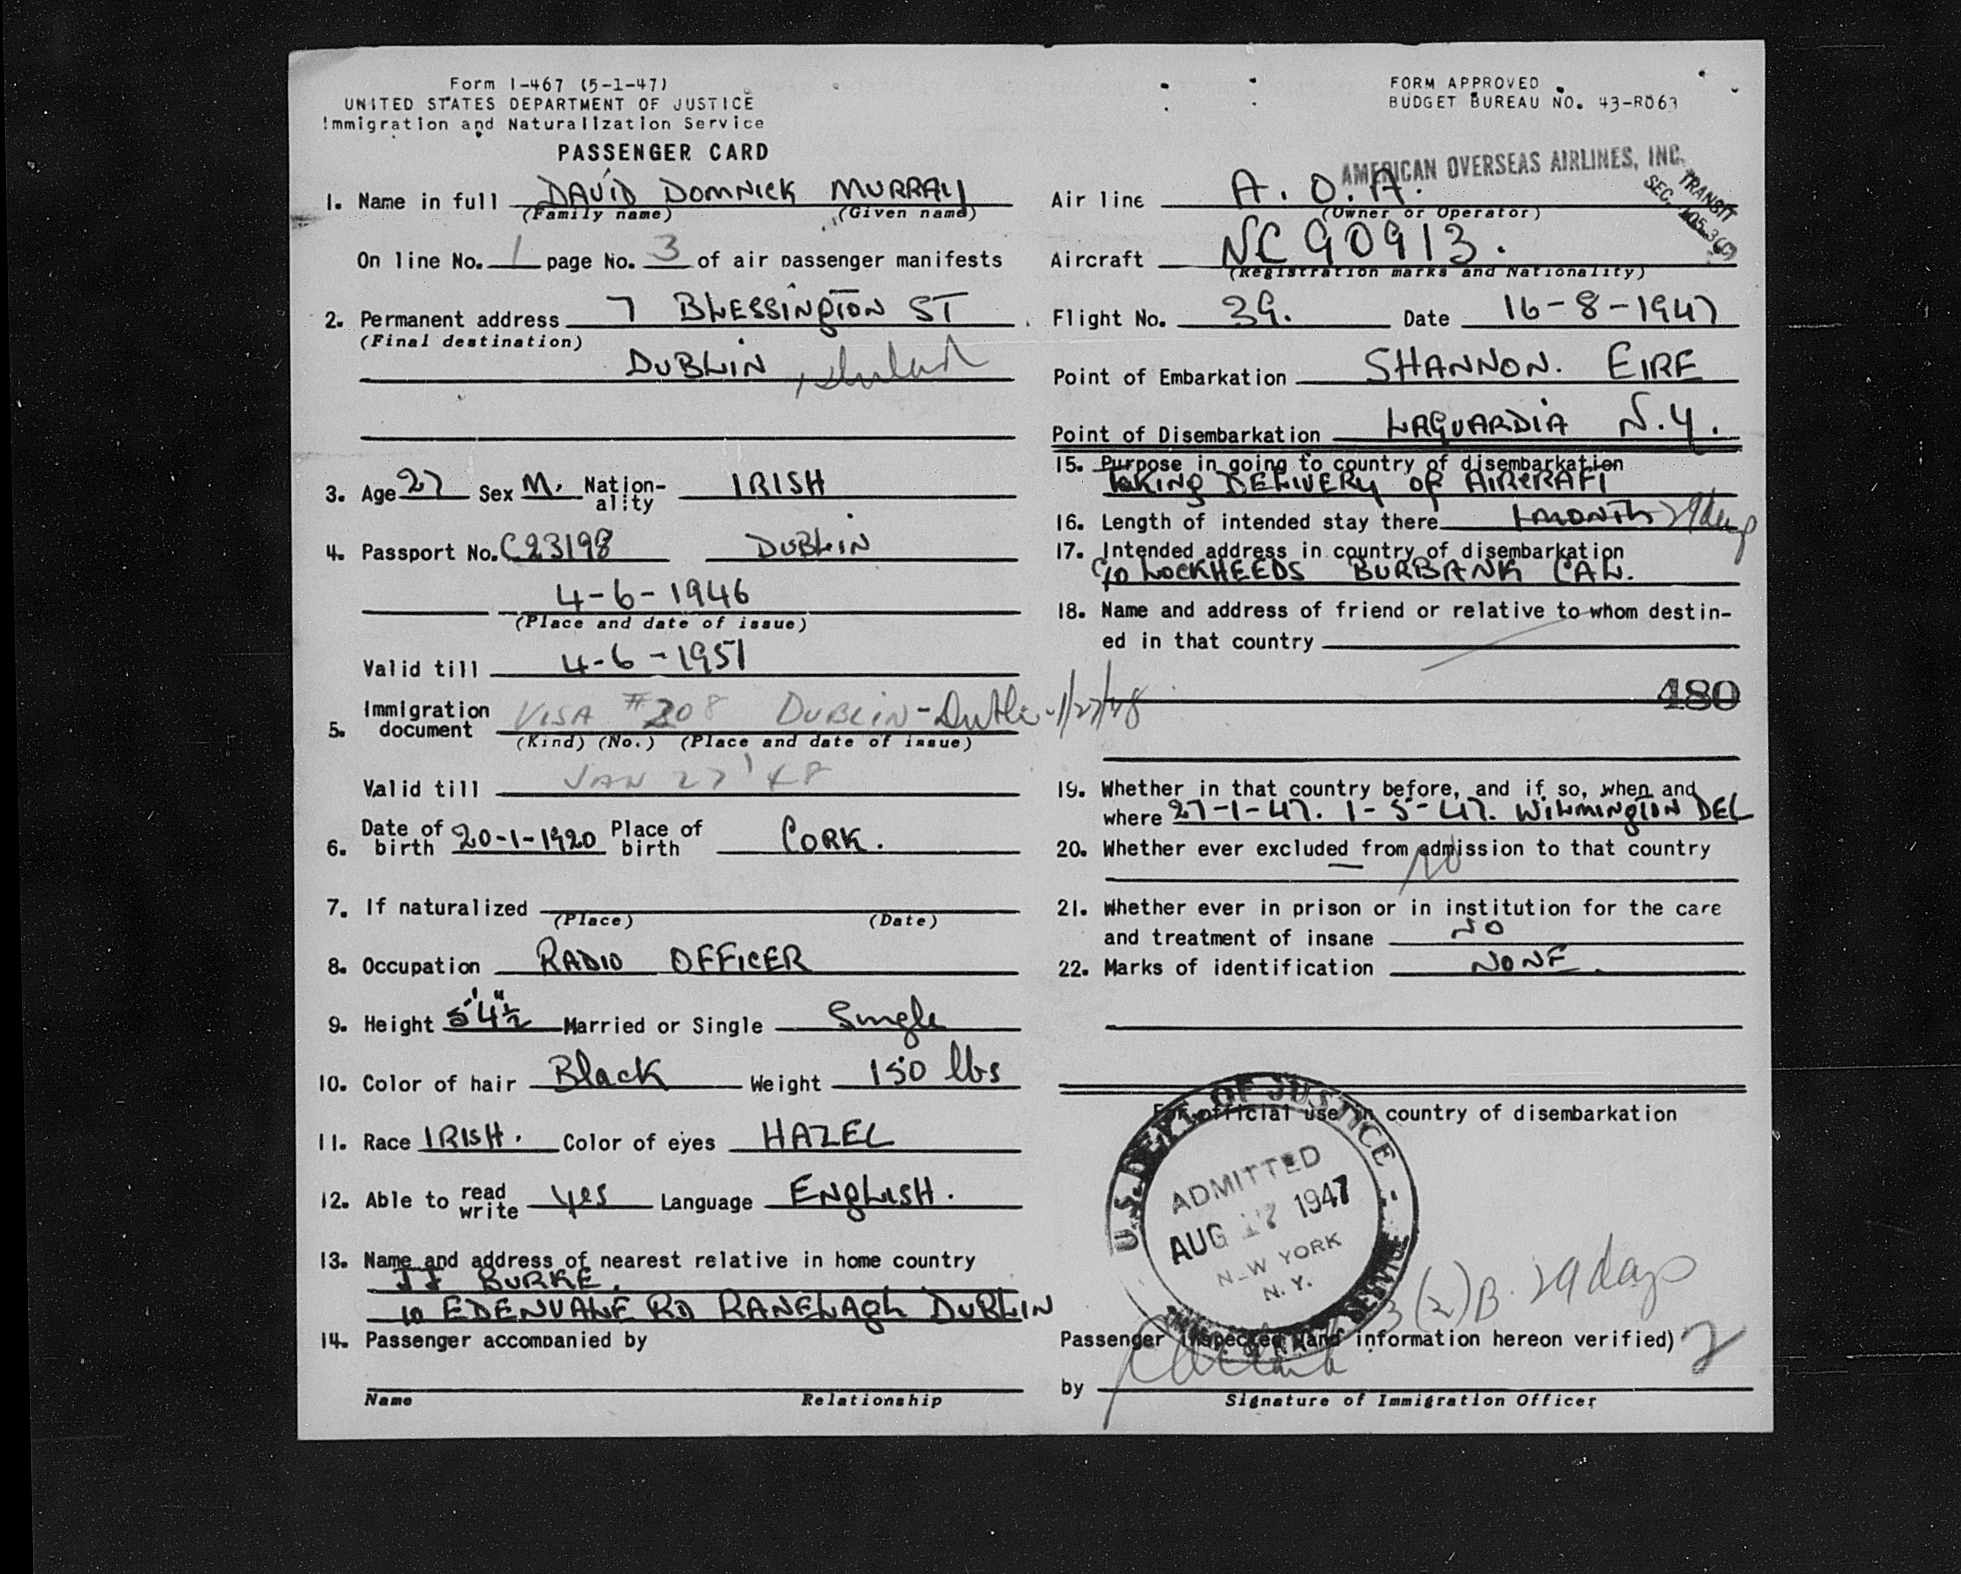 Form I-467 (5-1-47)
UNITED STATES DEPARTMENT OF JUSTICE
Immigration and Naturalization Service
PASSENGER CARD
1. Name in full DAVID DOMNICK MURRAY
(Family name) (Given name)
On line No. 1 page No. 3 of air passenger manifests
2. Permanent address 7 BLESSINGTON ST
(Final destination)
DUBLIN, Ireland
3. Age 27 Sex M. Nation-ality IRISH
4. Passport No. C23198 DUBLIN
4-6-1946
(Place and date of issue)
Valid till 4-6-1951
5. Immigration document VISA #208 DUBLIN - Dublin - 1/27/48
(Kind) (No.) (Place and date of issue)
Valid till JAN 27 '48
6. Date of birth 20-1-1920 Place of birth CORK.
7. If naturalized
(Place) (Date)
8. Occupation RADIO OFFICER
9. Height 5' 4½" Married or Single Single
10. Color of hair Black Weight 150 lbs
11. Race IRISH. Color of eyes HAZEL
12. Able to read write yes Language ENGLISH.
13. Name and address of nearest relative in home country
JJ BURKE.
10 EDENVALE RD RANELAGH DUBLIN
14. Passenger accompanied by
Name Relationship
FORM APPROVED
BUDGET BUREAU NO. 43-R063
AMERICAN OVERSEAS AIRLINES, INC.
TRANSIT
SEC. 105.3(C)
Air line A. O. A.
(Owner or Operator)
Aircraft NC 90913.
(Registration marks and Nationality)
Flight No. 39. Date 16-8-1947
Point of Embarkation SHANNON. EIRE
Point of Disembarkation LAGUARDIA N.Y.
15. Purpose in going to country of disembarkation
TAKING DELIVERY OF AIRCRAFT
16. Length of intended stay there 1 MONTH 29 days
17. Intended address in country of disembarkation
C/O LOCKHEEDS BURBANK CAL.
18. Name and address of friend or relative to whom destin-
ed in that country
480
19. Whether in that country before, and if so, when and
where 27-1-47. 1-5-47. WILMINGTON DEL
20. Whether ever excluded from admission to that country
No
21. Whether ever in prison or in institution for the care
and treatment of insane NO
22. Marks of identification NONE.
For official use in country of disembarkation
U.S. DEPT. OF JUSTICE
ADMITTED
AUG 17 1947
NEW YORK
N. Y.
3(2)B. 29 days
Passenger inspected (and information hereon verified) 2
by
Signature of Immigration Officer